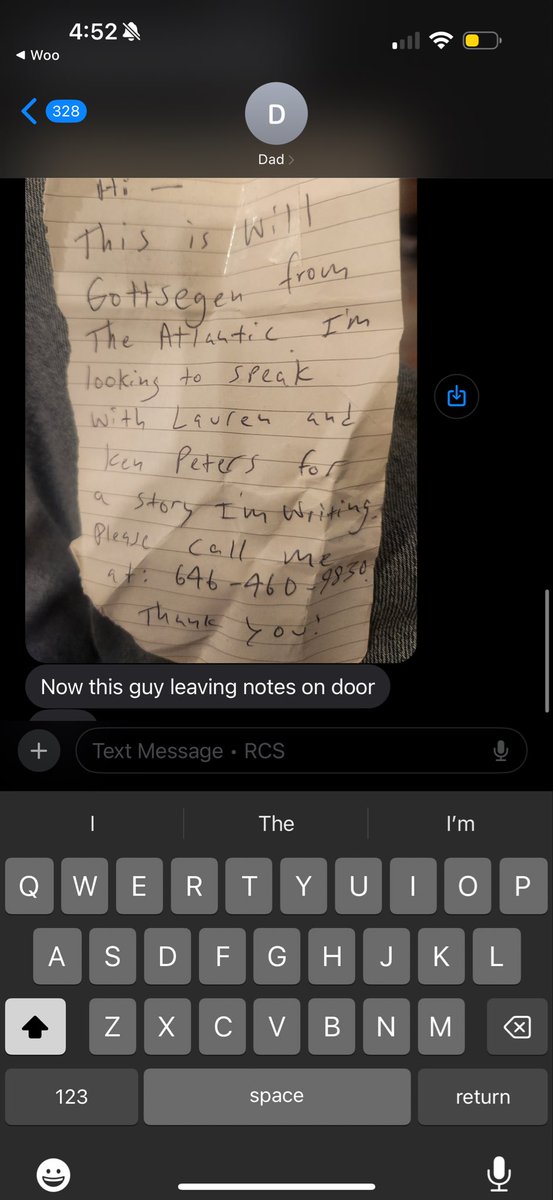 4:52
◀ Woo
328
D
Dad
Hi —
This is Will
Gottsegen from
The Atlantic. I'm
looking to speak
with Lauren and
Ken Peters for
a story I'm writing.
Please call me
at: 646-460-9830.
Thank you!
Now this guy leaving notes on door
Text Message • RCS
I The I'm
Q W E R T Y U I O P
A S D F G H J K L
Z X C V B N M
123 space return